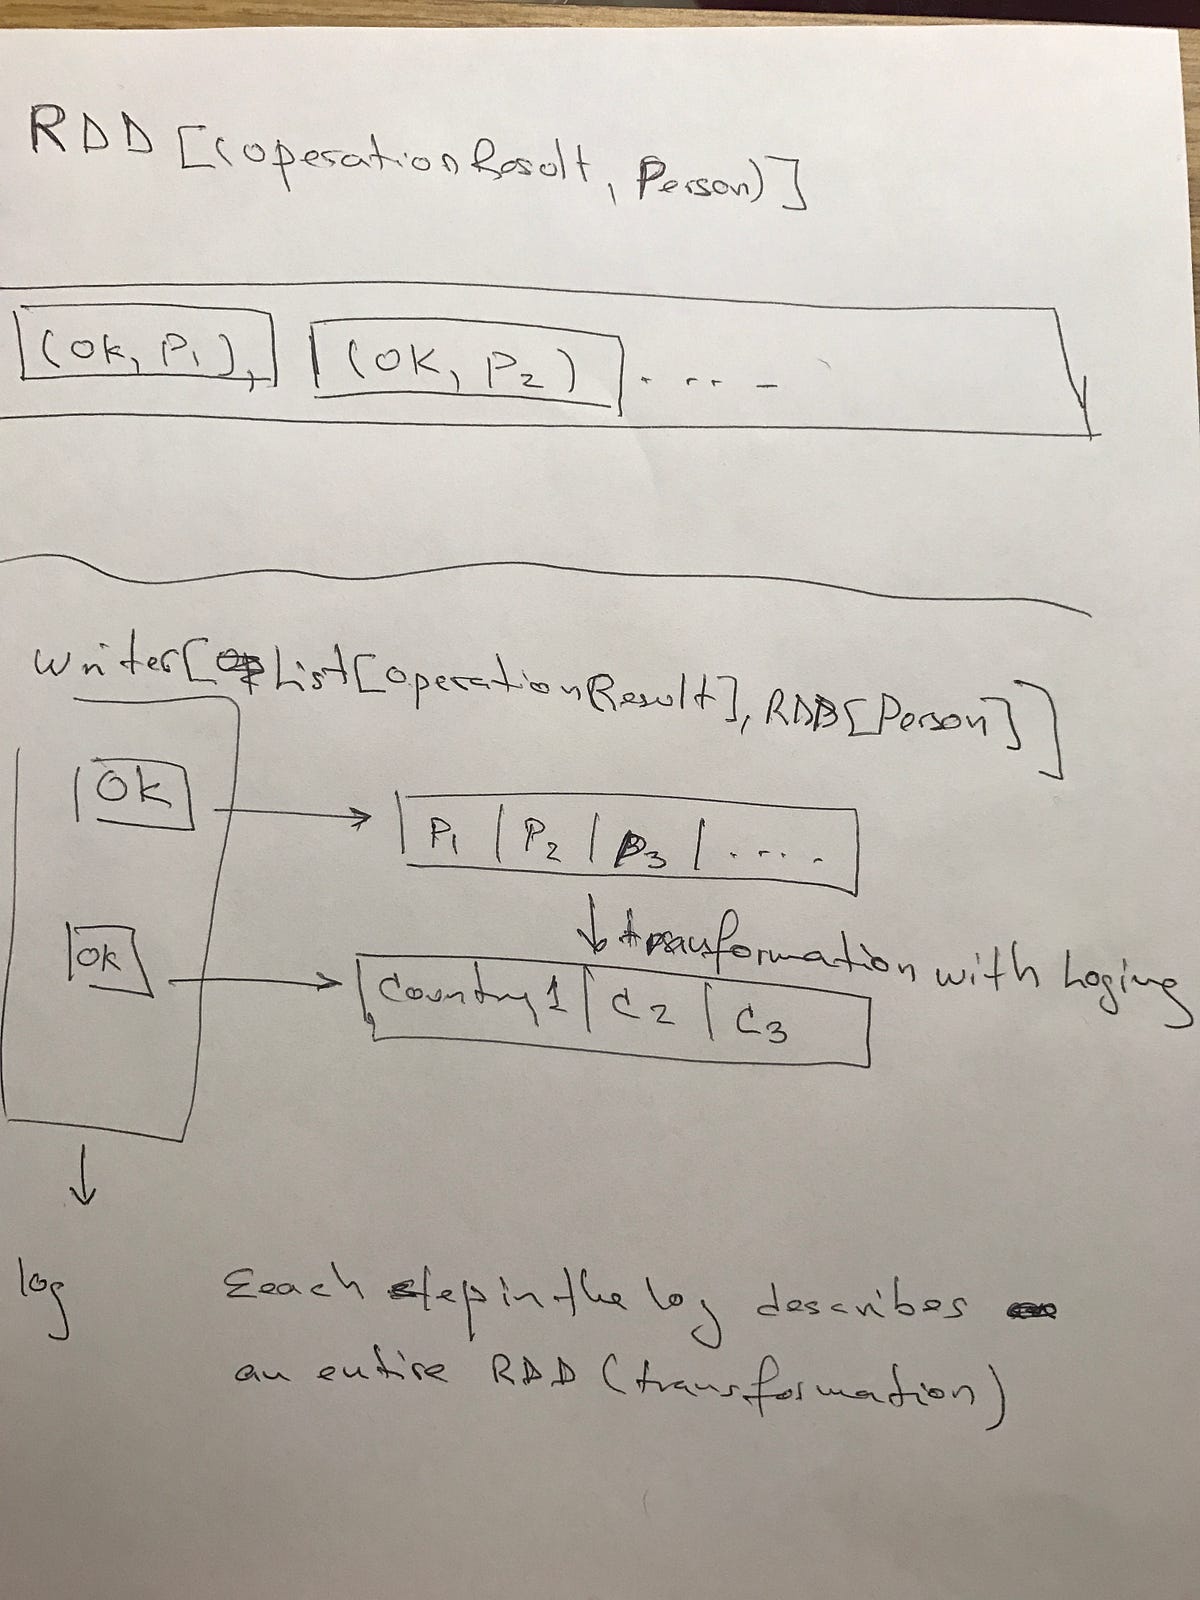 RDD [(operationResult, Person)]
(Ok, P1), (OK, P2) . ... -
Writer[List[operationResult], RDD[Person]]
Ok
P1 | P2 | P3 | ....
transformation with Loging
Ok
Country1 | C2 | C3
log
Eeach step in the log describes
an entire RDD (transformation)